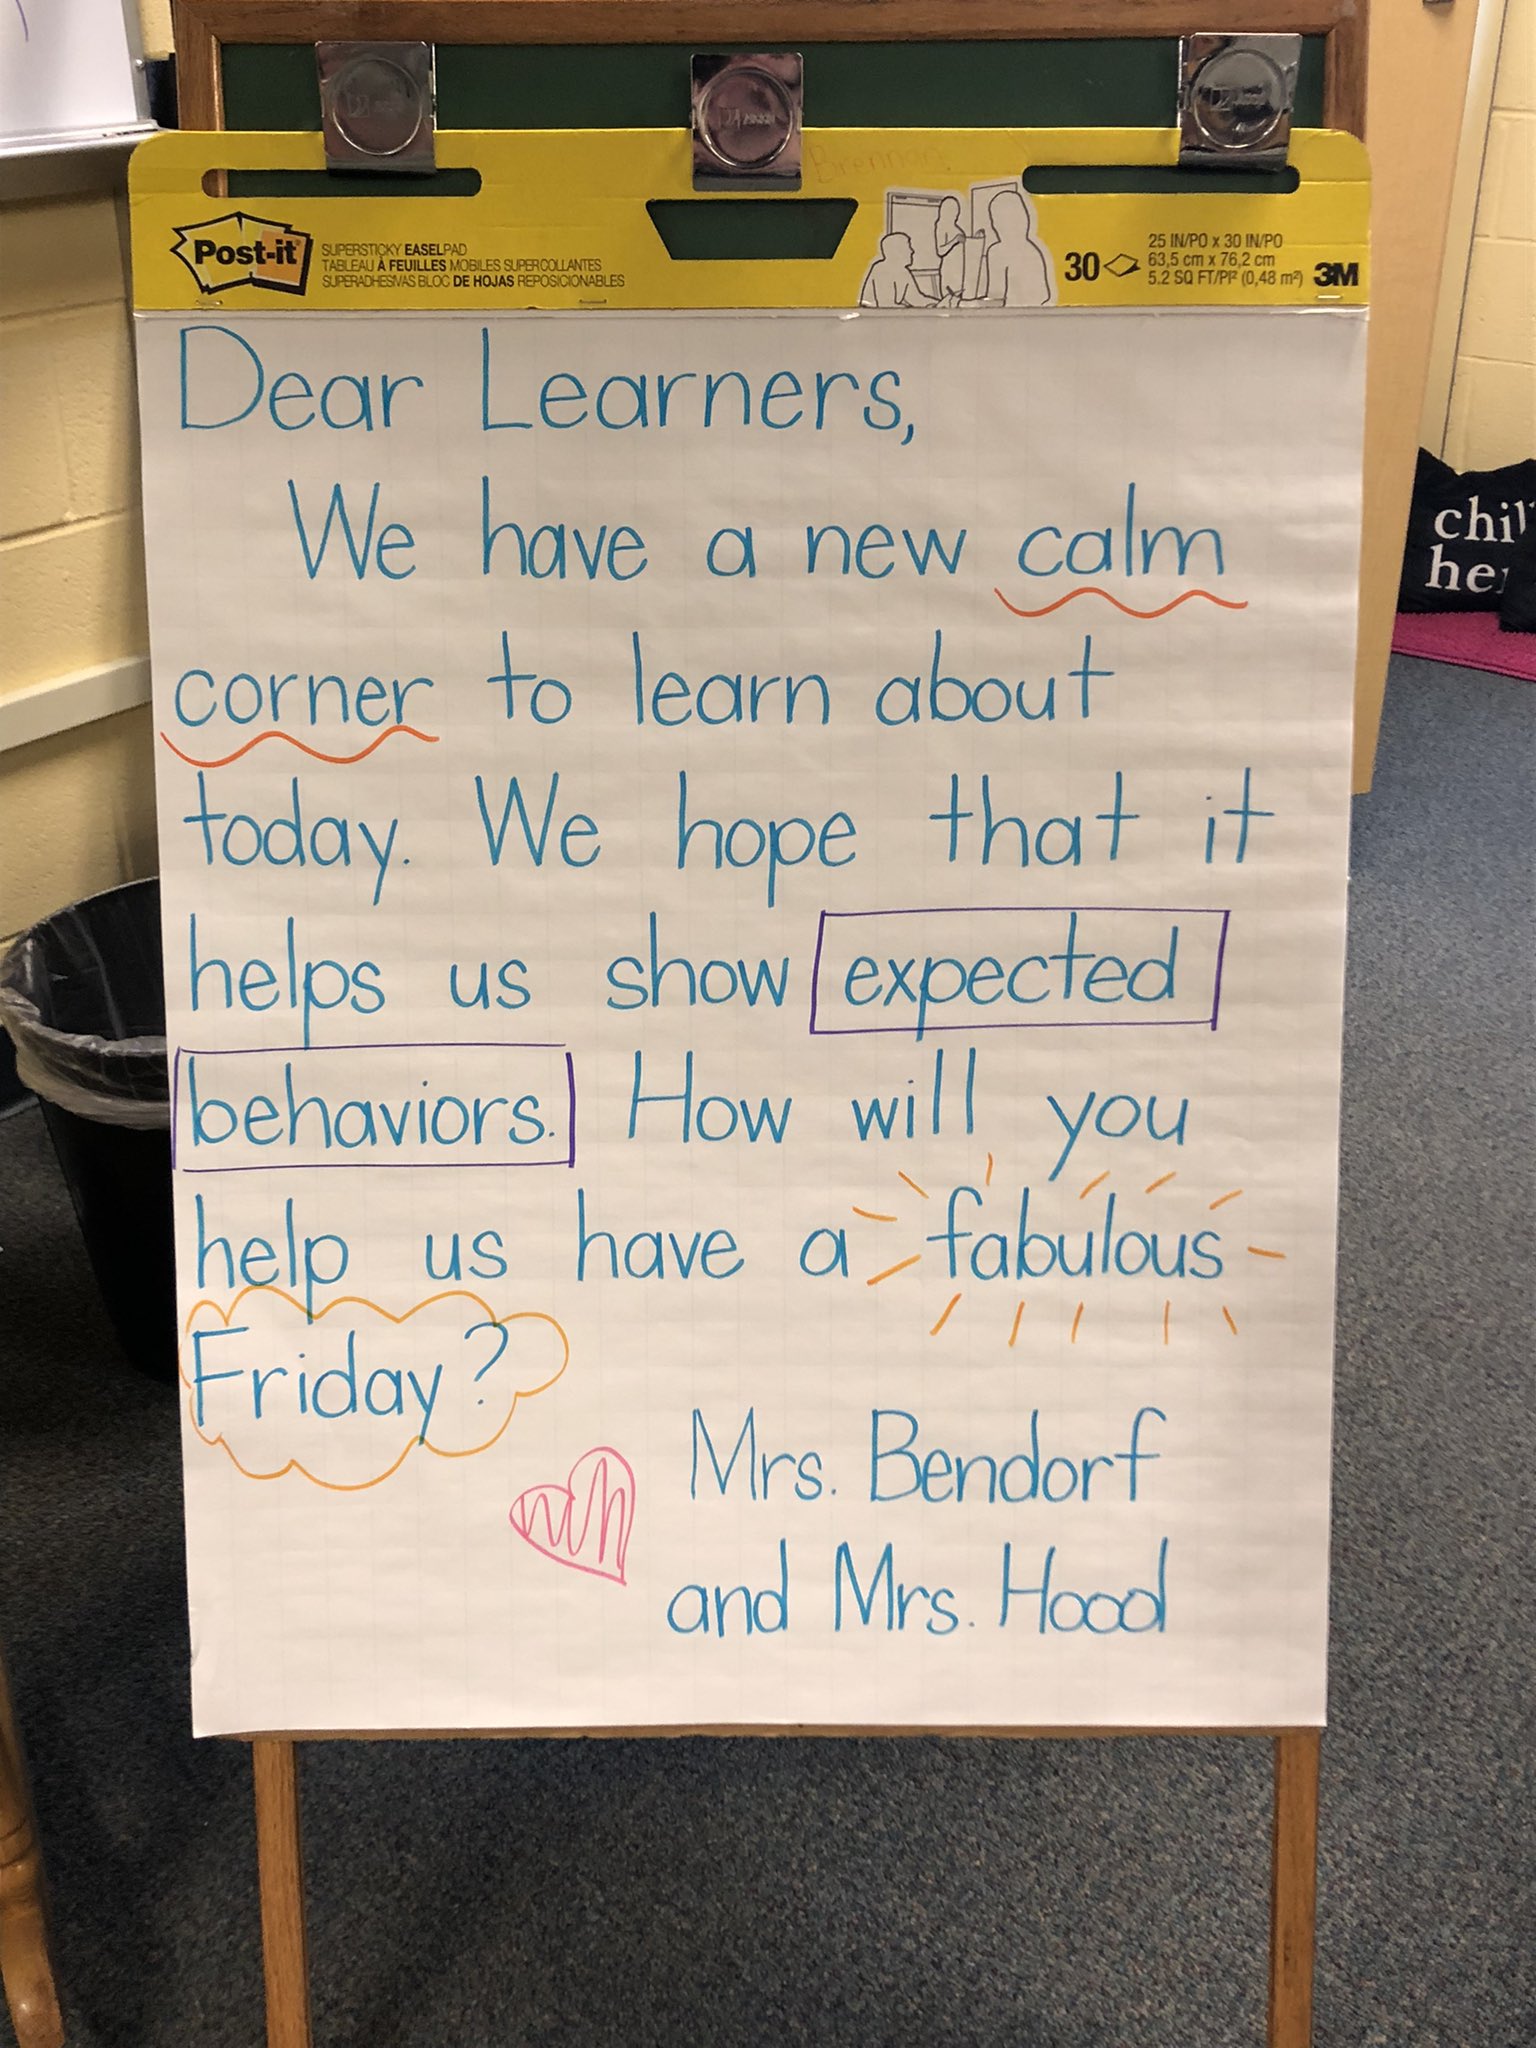 Brennan
Post-it
SUPERSTICKY EASEL PAD
TABLEAU À FEUILLES MOBILES SUPER COLLANTES
SUPERADHESIVAS BLOC DE HOJAS REPOSICIONABLES
30
25 IN/PO x 30 IN/PO
63,5 cm x 76,2 cm
5.2 SQ FT/PI² (0,48 m²)
3M
Dear Learners,
We have a new calm
corner to learn about
today. We hope that it
helps us show expected
behaviors. How will you
help us have a fabulous
Friday?
Mrs. Bendorf
and Mrs. Hood
chil
he